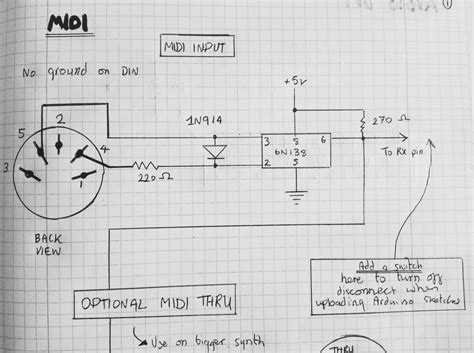 1
MIDI
MIDI INPUT
No ground on DIN
+5v
5
2
4
3
1
1N914
220 Ω
3
8
6
6N138
2
5
270 Ω
To Rx pin
BACK
VIEW
Add a switch
here to turn off
disconnect when
uploading Arduino sketches
OPTIONAL MIDI THRU
Use on bigger synth
THRU